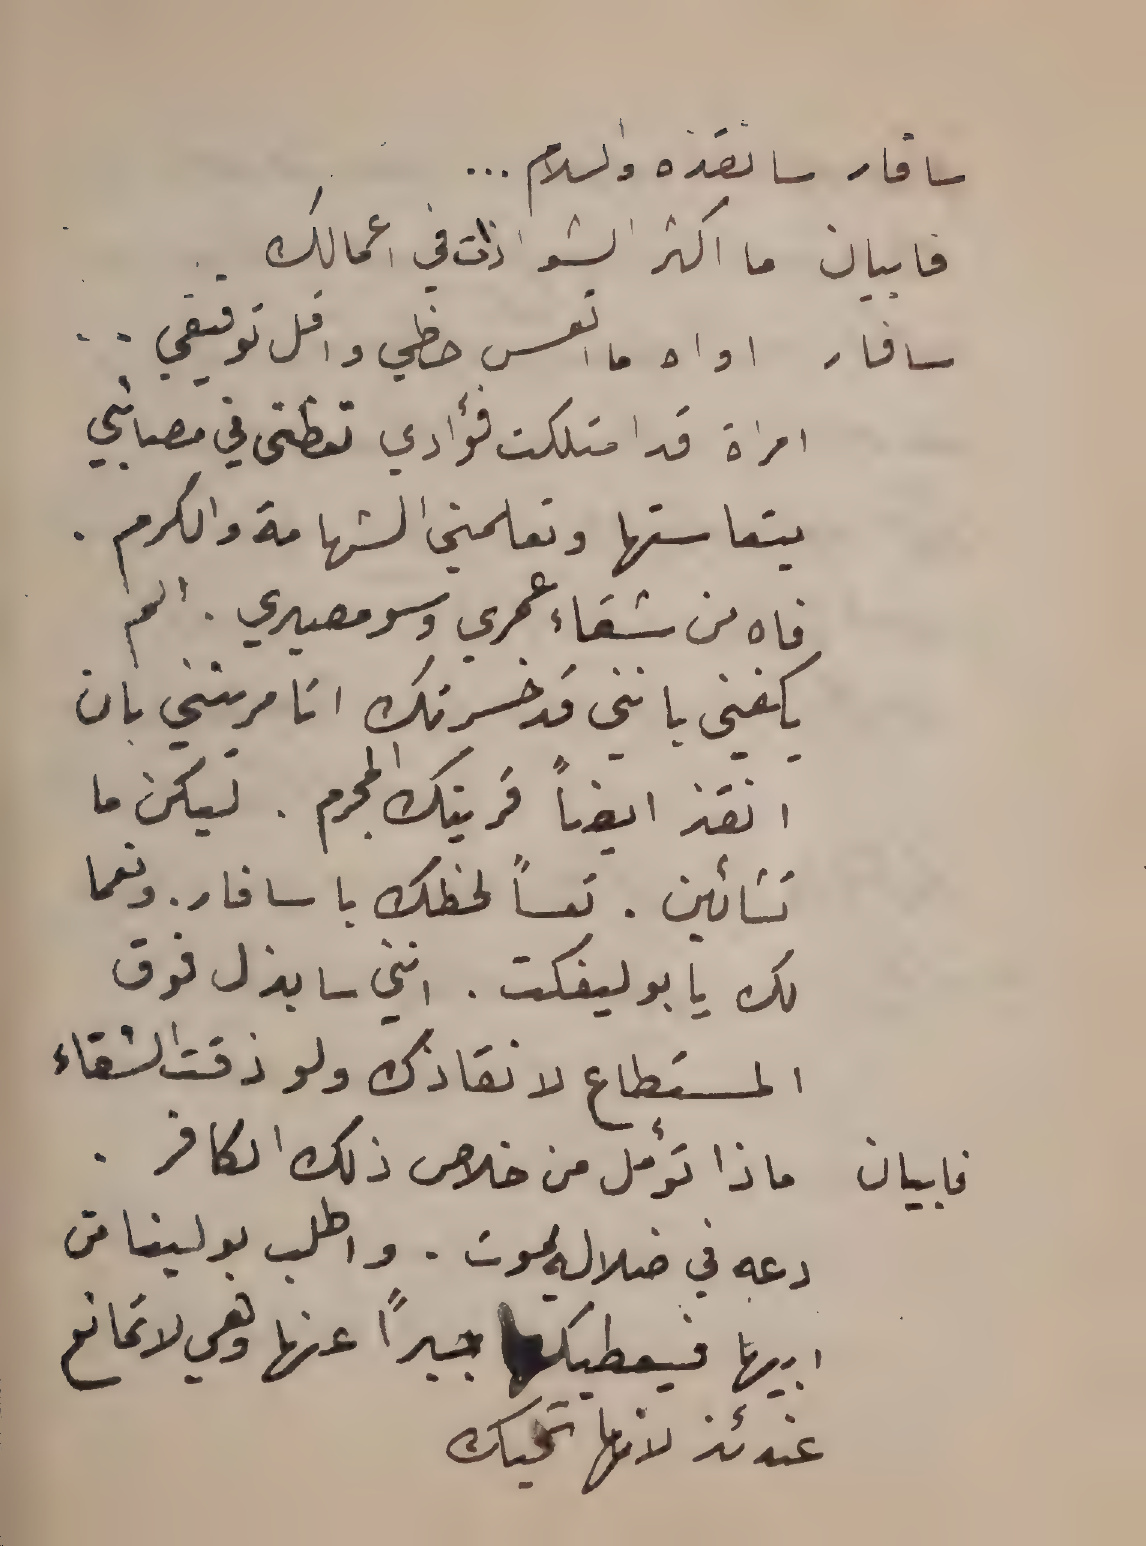 سافار سانقذه والسلام ...
فابيان ما اكثر الشواذات في اعمالك ..
سافار اواه ما اتعس حظي واقل توفيقي ..
امراة قد امتلكت فؤادي تعظني في مصائبي
بتعاستها وتعلمني الشهامة والكرم .
فاه من شقاء عمري وسو مصيري . الم
يكفيني بانني قد خسرتك اتامرينني بان
انقذ ايضاً قرينك المجرم . ليكن ما
تشائين . تعساً لحظك يا سافار . ونعما
لك يا بوليفكت . انني سابذل فوق
المستطاع لانقاذك ولو ذقت الشقاء
فابيان ماذا تؤمل من خلاص ذلك الكافر .
دعه في ضلاله يموت . واطلب بولينا من
ابيها فيعطيكها جبراً عنها وهي لا تمانع
عندئذ لانها تحبك